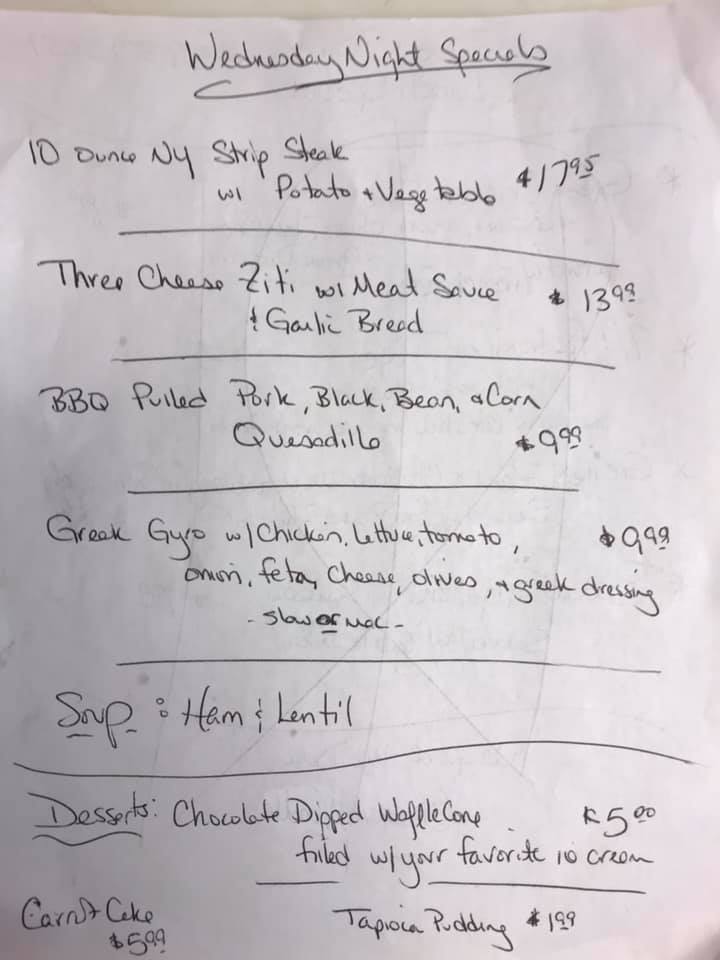 Wednesday Night Specials
10 ounce NY Strip Steak
w/ Potato + Vegetable $17.95
Three Cheese Ziti w/ Meat Sauce $13.99
& Garlic Bread
BBQ Pulled Pork, Black, Bean, & Corn
Quesadilla $9.99
Greek Gyro w/ Chicken, lettuce, tomato, $9.99
onion, feta, cheese, olives, & greek dressing
- Slaw or Mac -
Soup : Ham & Lentil
Desserts: Chocolate Dipped Waffle Cone $5.00
filled w/ your favorite ice cream
Carrot Cake Tapioca Pudding $1.99
$5.99